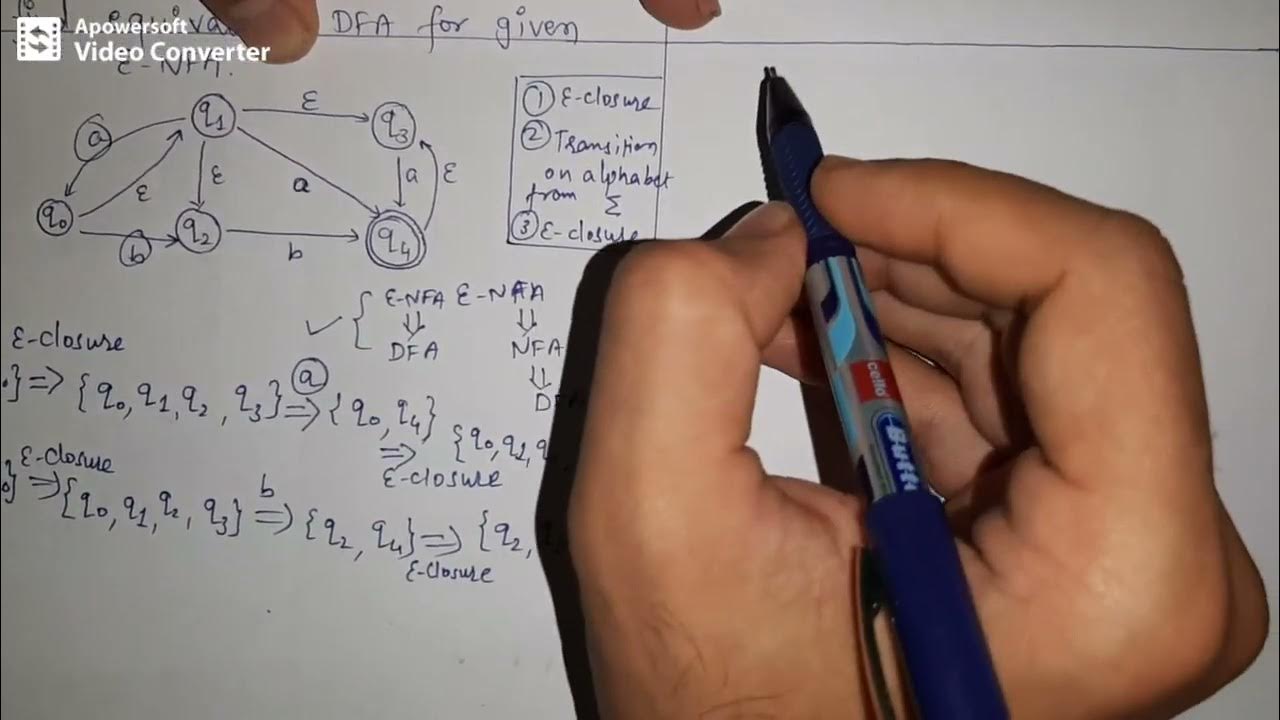 Apowersoft
Video Converter
DFA for given
ε-NFA.
q1 ε q3
a ε ε a a ε
q0 b q2 b q4
① ε-closure
② Transition
on alphabet
from Σ
③ ε-closure
ε-NFA ε-NFA
⇓ ⇓
DFA NFA
⇓
ε-closure
} => {q0, q1, q2, q3} a => {q0, q4}
=> {q0, q1, q
ε-closure
ε-closure
} => {q0, q1, q2, q3} b => {q2, q4} => {q2,
ε-closure
cello
Butti